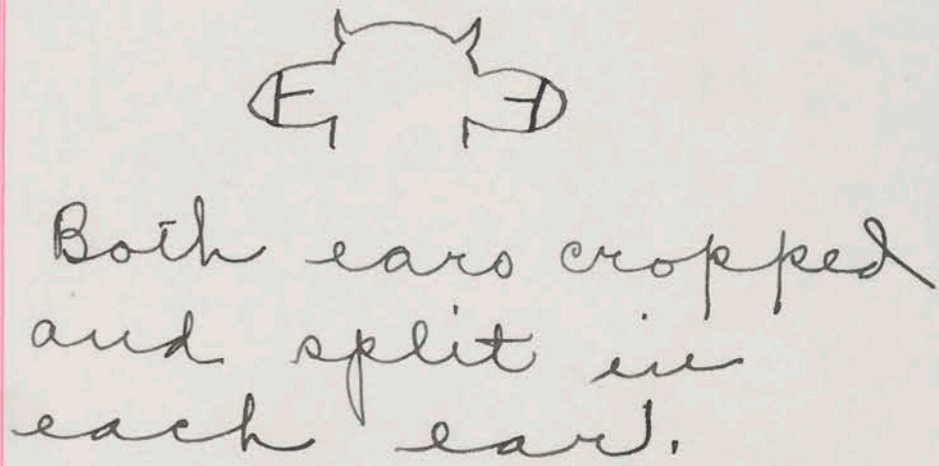 Both ears cropped
and split in
each ear.